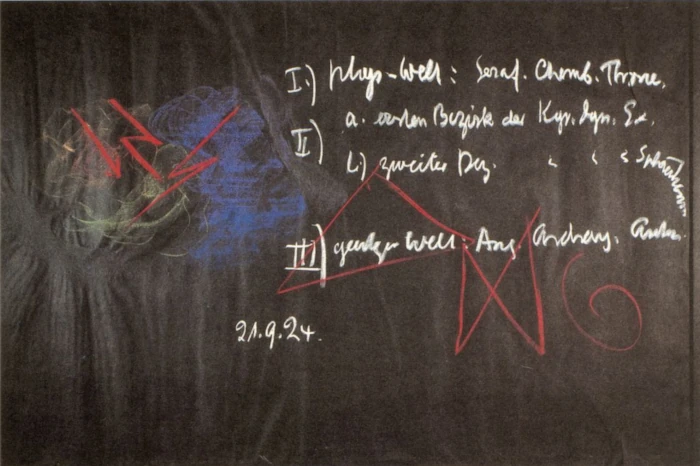 I.) phys-Welt: Seraf. Cherub. Throne.
II) a. ersten Bezirk der Kyr. Dyn. Ex.
b.) zweiter Bez. " " "
III) geistige Welt: Ang. Archang. Archai.
21.9.24.